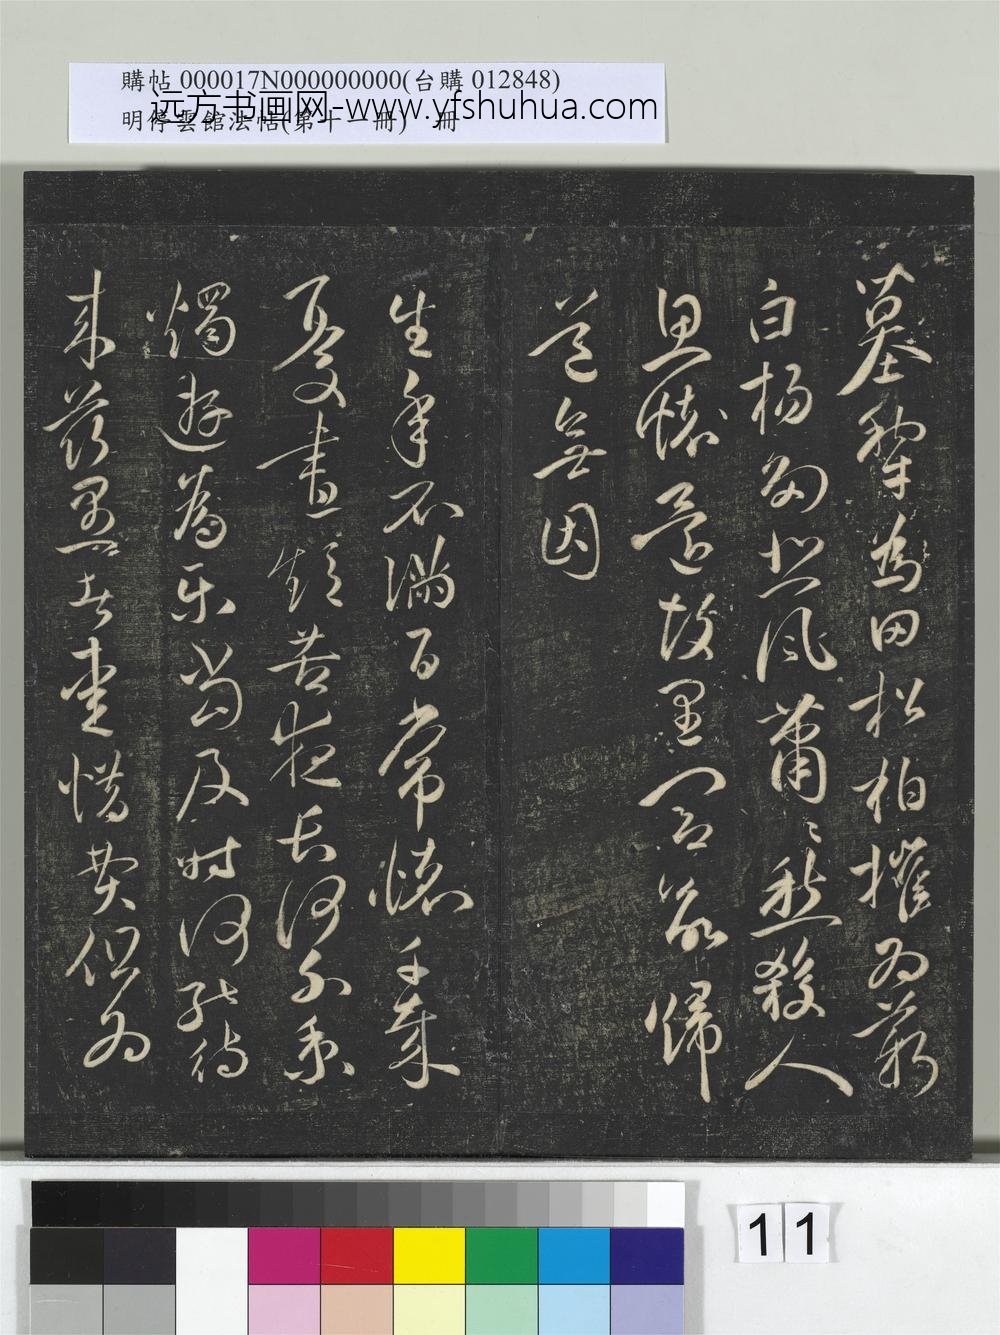 購帖 000017N000000000(台購 012848)
远方书画网-www.yfshuhua.com
明停雲館法帖(第十一冊) 冊
墓犁為田松柏摧為薪
白楊多悲風蕭〻愁殺人
思懷還故里閭欲歸
道無因
生年不滿百常懷千歲
憂晝短苦夜長何不秉
燭遊為樂當及時何能待
來茲愚者愛惜費但為
11